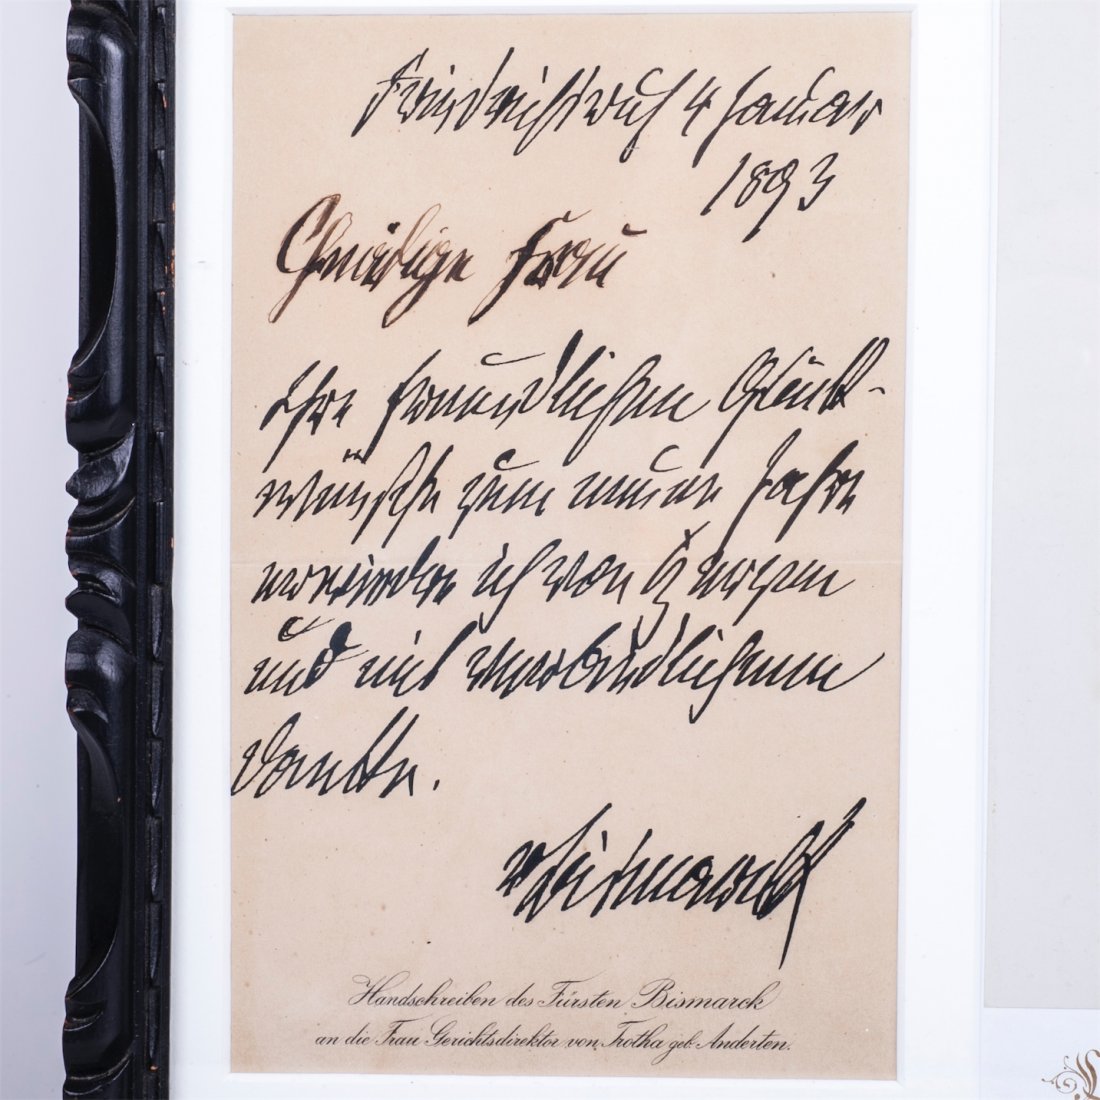 Friedrichsruh 4 Januar
1893
Gnädige Frau
Ihre freundlichen Glück-
wünsche zum neuen Jahre
erwiedre ich von Herzen
und mit verbindlichem
Danke.
v Bismarck
Handschreiben des Fürsten Bismarck
an die Frau Gerichtsdirektor von Trotha geb. Anderten.